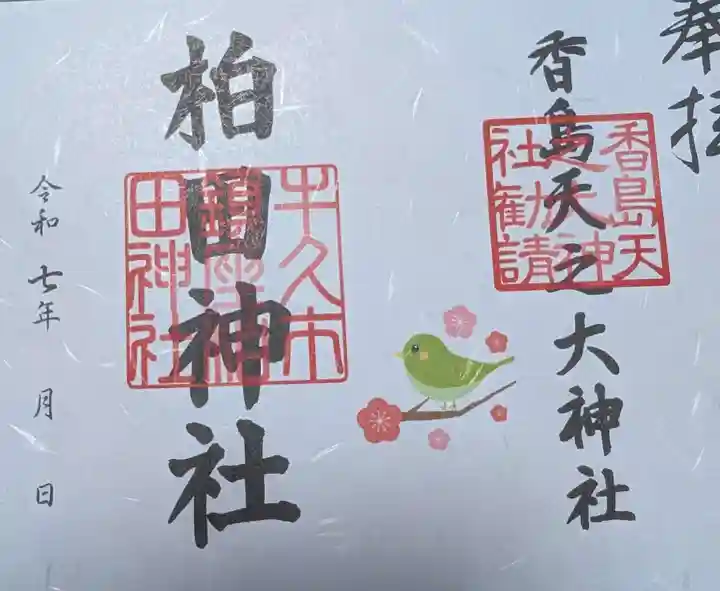 奉拝
香島天之大神社
香島天
之大神
社勧請
柏田神社
牛久市
鎮座柏
田神社
令和七年 月 日